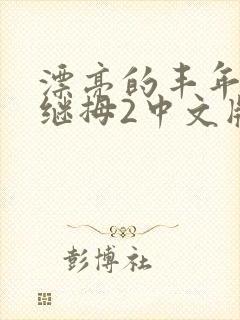 漂亮的丰年
继拇2中文版
彭博社